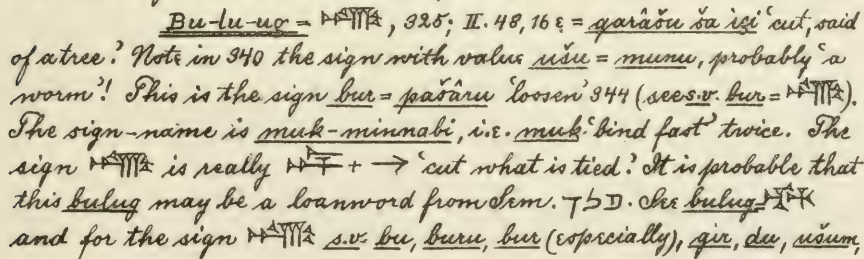 Bu-lu-ug = , 325; II. 48, 16 ε = garâšu ša içi ‘cut, said
of a tree’. Note in 340 the sign with value ušu = munu, probably ‘a
worm’! This is the sign bur = pašâru ‘loosen’ 344 (see s.v. bur = ).
The sign-name is muk-minnabi, i.e. muk ‘bind fast’ twice. The
sign is really + ‘cut what is tied’. It is probable that
this bulug may be a loanword from Sem. פלך. See bulug =
and for the sign s.v. bu, buru, bur (especially), gir, du, ušum,